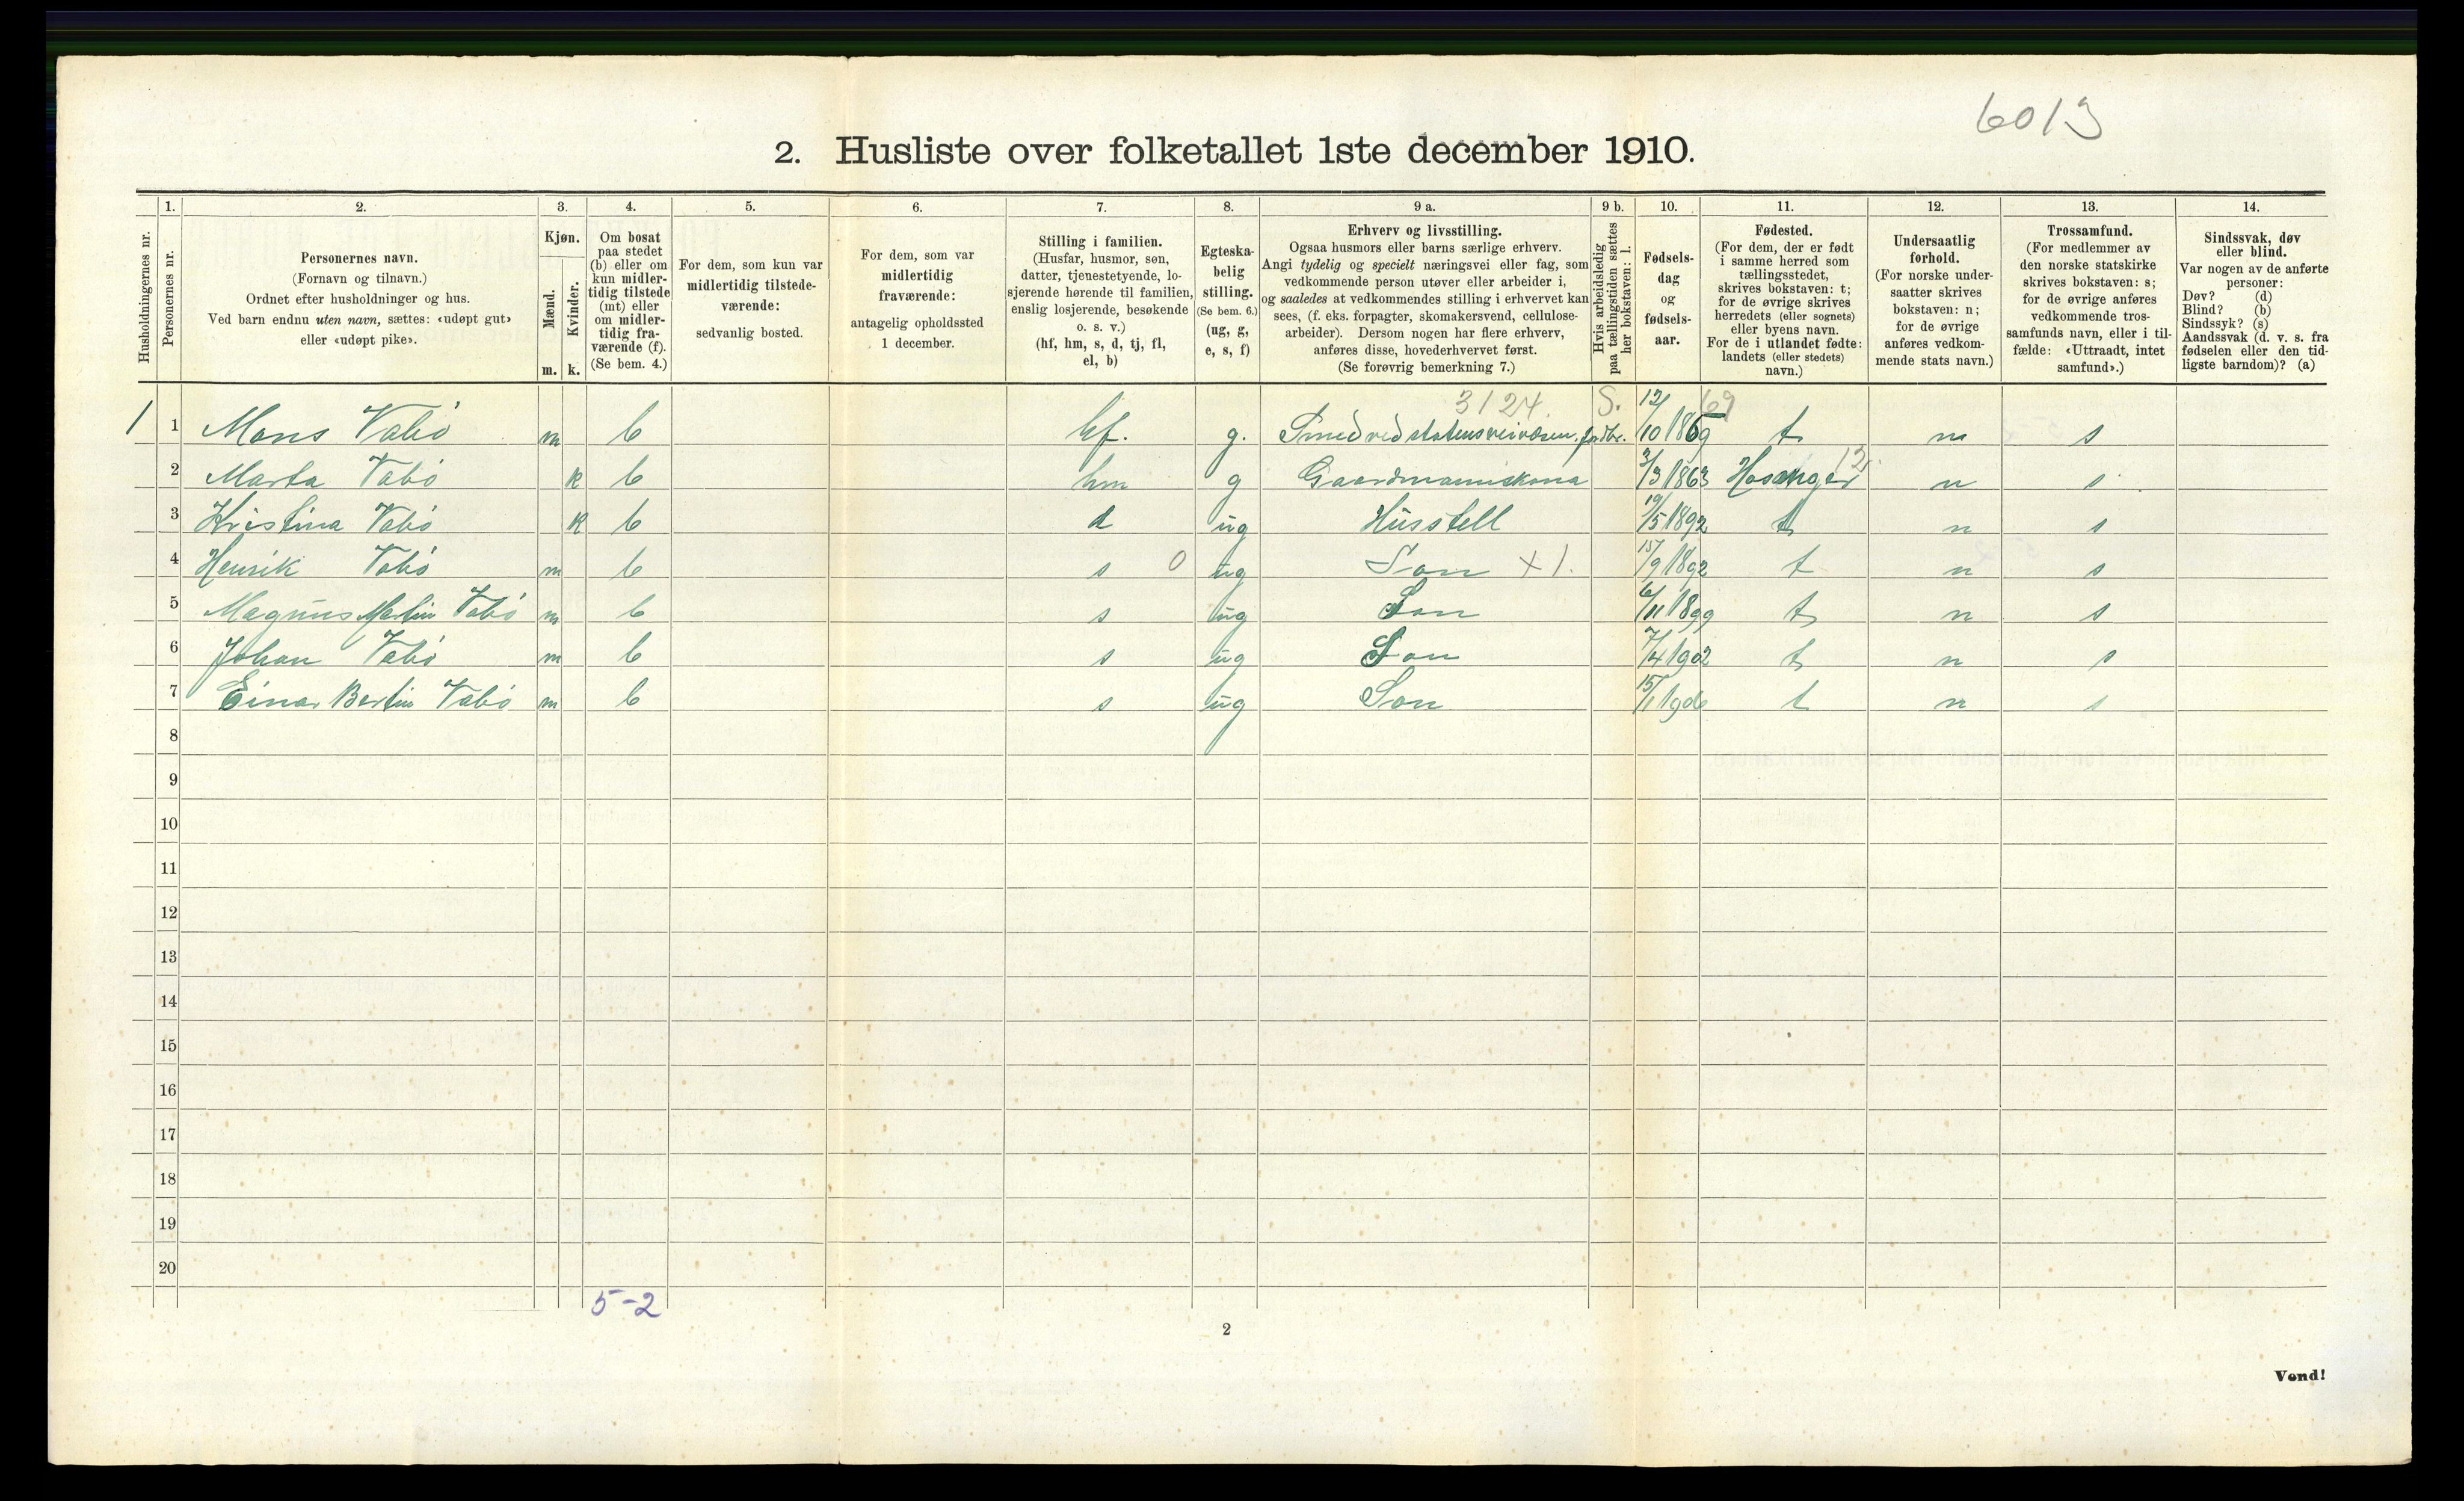 6013
2. Husliste over folketallet 1ste december 1910.
Husholdningernes nr.
1.
Personernes nr.
2.
Personernes navn.
(Fornavn og tilnavn.)
Ordnet efter husholdninger og hus.
Ved barn endnu uten navn, sættes: «udøpt gut»
eller «udøpt pike».
3.
Kjøn.
Mænd.
Kvinder.
m. k.
4.
Om bosat
paa stedet
(b) eller om
kun midler-
tidig tilstede
(mt) eller
om midler-
tidig fra-
værende (f).
(Se bem. 4.)
5.
For dem, som kun var
midlertidig tilstede-
værende:
sedvanlig bosted.
6.
For dem, som var
midlertidig
fraværende:
antagelig opholdssted
1 december.
7.
Stilling i familien.
(Husfar, husmor, søn,
datter, tjenestetyende, lo-
sjerende hørende til familien,
enslig losjerende, besøkende
o. s. v.)
(hf, hm, s, d, tj, fl,
el, b)
8.
Egteska-
belig
stilling.
(Se bem. 6.)
(ug, g,
e, s, f)
9 a.
Erhverv og livsstilling.
Ogsaa husmors eller barns særlige erhverv.
Angi tydelig og specielt næringsvei eller fag, som
vedkommende person utøver eller arbeider i,
og saaledes at vedkommendes stilling i erhvervet kan
sees, (f. eks. forpagter, skomakersvend, cellulose-
arbeider). Dersom nogen har flere erhverv,
anføres disse, hovederhvervet først.
(Se forøvrig bemerkning 7.)
9 b.
Hvis arbeidsledig
paa tællingstiden sættes
her bokstaven: l.
10.
Fødsels-
dag
og
fødsels-
aar.
11.
Fødested.
(For dem, der er født
i samme herred som
tællingsstedet,
skrives bokstaven: t;
for de øvrige skrives
herredets (eller sognets)
eller byens navn.
For de i utlandet fødte:
landets (eller stedets)
navn.)
12.
Undersaatlig
forhold.
(For norske under-
saatter skrives
bokstaven: n;
for de øvrige
anføres vedkom-
mende stats navn.)
13.
Trossamfund.
(For medlemmer av
den norske statskirke
skrives bokstaven: s;
for de øvrige anføres
vedkommende tros-
samfunds navn, eller i til-
fælde: «Uttraadt, intet
samfund».)
14.
Sindssvak, døv
eller blind.
Var nogen av de anførte
personer:
Døv? (d)
Blind? (b)
Sindssyk? (s)
Aandssvak (d. v. s. fra
fødselen eller den tid-
ligste barndom)? (a)
3124. S. 69
1 1 Mons Vabö m b hf. g. Smed ved statens veivæsen. jordbr. 12/10 1869 t n s
12.
2 Marta Vabö k b hm g Gaardmannskona 3/3 1863 Hosanger n s
3 Kristina Vabö k b d ug Husstell 19/5 1892 t n s
4 Henrik Vabö m b s 0 ug Son x1. 15/9 1892 t n s
5 Magnus Martin Vabö m b s ug Son 6/11 1899 t n s
6 Johan Vabö m b s ug Son 7/4 1902 t n s
7 Einar Bertin Vabö m b s ug Son 15/1 1906 t n s
8
9
10
11
12
13
14
15
16
17
18
19
20
5-2
2
Vend!